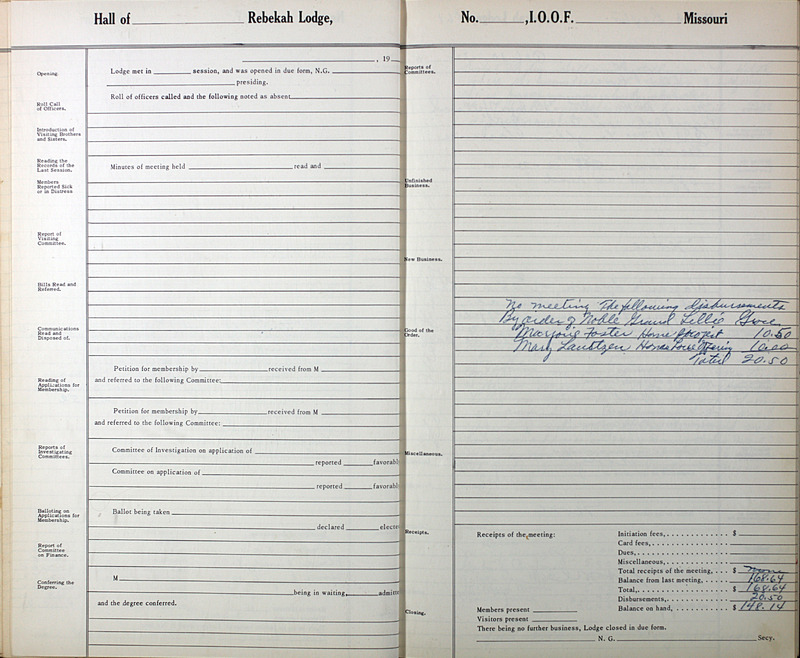 Hall of Rebekah Lodge,
No. , I.O.O.F. Missouri
, 19
Opening
Lodge met in session, and was opened in due form, N.G.
presiding.
Roll Call of Officers.
Roll of officers called and the following noted as absent
Introduction of Visiting Brothers and Sisters.
Reading the Records of the Last Session.
Minutes of meeting held read and
Members Reported Sick or in Distress
Report of Visiting Committee.
Bills Read and Referred.
Communications Read and Disposed of.
Petition for membership by received from M
Reading of Applications for Membership.
and referred to the following Committee:
Petition for membership by received from M
and referred to the following Committee:
Reports of Investigating Committees.
Committee of Investigation on application of
reported favorabl
Committee on application of
reported favorabl
Balloting on Applications for Membership.
Ballot being taken
declared electe
Report of Committee on Finance.
Conferring the Degree.
M
being in waiting, admitte
and the degree conferred.
Reports of Committees.
Unfinished Business.
New Business.
No meeting The following disbursements
By order of Noble Grand Lillie
Good of the Order.
Marjorie Foster Home 10.50
Mary Home 10.00
Total 20.50
Miscellaneous.
Receipts.
Receipts of the meeting:
Initiation fees, $
Card fees,
Dues,
Miscellaneous,
Total receipts of the meeting, $ None
Balance from last meeting, 168.64
Total, $ 168.64
Disbursements, 20.50
Balance on hand, $ 148.14
Closing.
Members present
Visitors present
There being no further business, Lodge closed in due form.
N. G. Secy.